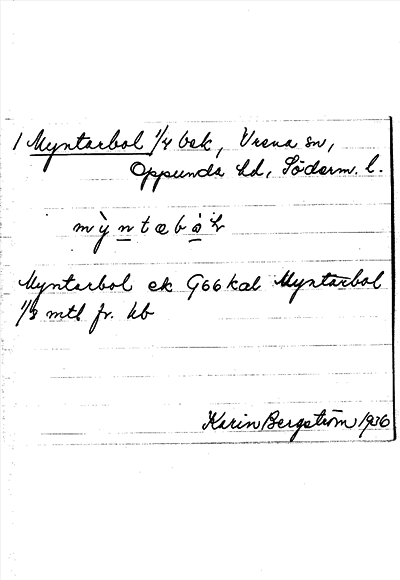 1 Myntarbol 1/4 bek, Vrena sn,
Oppunda hd, Söderm. l.
Myntarbol ek G66 kal Myntarbol
mtl fr. kb
Karin Bergström 1936